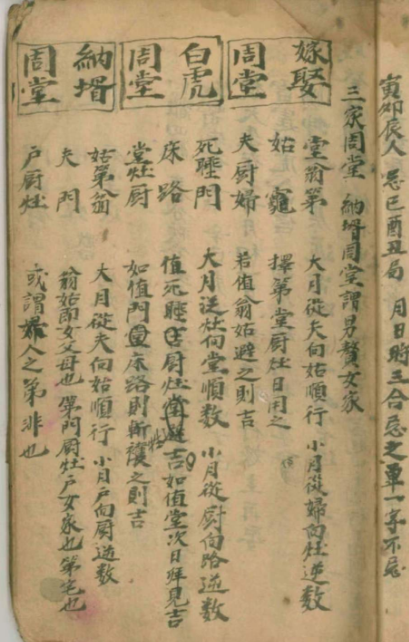 寅卯辰人 忌巳酉丑局 月日時三合忌之單一字不忌
三家周堂 納壻周堂謂男贅女家
嫁娶周堂
堂翁第 大月從夫向姑順行 小月從婦向灶逆数
姑 竈 擇第堂厨灶日用之
夫厨婦 若值翁姑避之則吉
白虎周堂
死睡門 大月從灶向堂順数 小月從厨向路逆数
床 路 值死睡 厨灶 吉如值堂次日拜見吉
堂灶厨 如值門 床路則 之則吉
納壻周堂
姑第翁 大月從夫向姑順行 小月戶向厨逆数
夫 門 翁姑 女父母也 第門厨灶戶女家也第宅也
戶厨灶 或謂 人之第非也